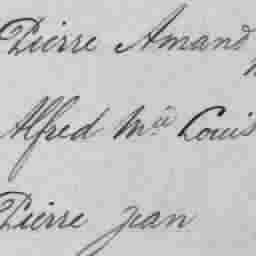 Pierre Amand
Alfred Mie Louis
Pierre Jean